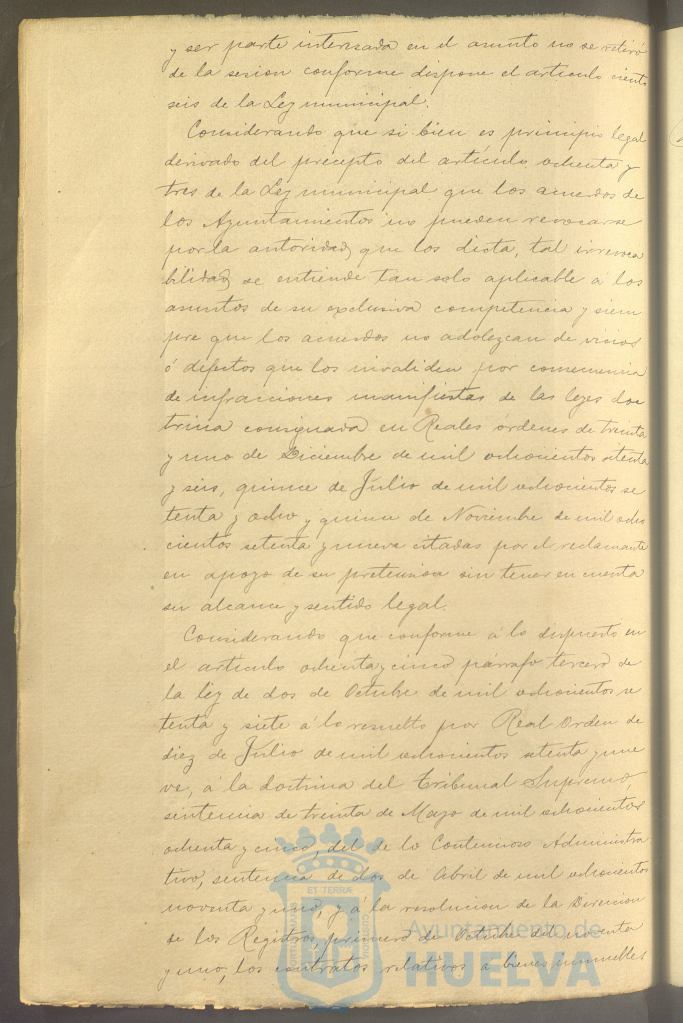 y ser parte interesada en el asunto no se retiró
de la sesion conforme dispone el artículo ciento
seis de la Ley municipal.
Considerando que si bien es principio legal
derivado del precepto del artículo ochenta y
tres de la Ley municipal que los acuerdos de
los Ayuntamientos no pueden revocarse
por la autoridad que los dicta, tal irrevoca
bilidad se entiende tan solo aplicable á los
asuntos de su exclusiva competencia y siem
pre que los acuerdos no adolezcan de vicios
ó defectos que los invaliden por consecuencia
de infracciones manifiestas de las leyes doc
trina consignada en Reales órdenes de treinta
y uno de Diciembre de mil ochocientos setenta
y seis, quince de Julio de mil ochocientos se
tenta y ocho y quince de Noviembre de mil ocho
cientos setenta y nueve citadas por el reclamante
en apoyo de su pretension sin tener en cuenta
su alcance y sentido legal.
Considerando que conforme á lo dispuesto en
el artículo ochenta y cinco párrafo tercero de
la ley de dos de Octubre de mil ochocientos se
tenta y siete á lo resuelto por Real Orden de
diez de Julio de mil ochocientos setenta y nue
ve, á la doctrina del Tribunal Supremo,
sentencia de treinta de Mayo de mil ochocientos
ochenta y cinco, del de lo Contencioso Administra
tivo, sentencia de dos de Abril de mil ochocientos
noventa y uno, y á la resolucion de la Direccion
de los Registros, primero de Octubre del noventa
y uno, los contratos relativos á bienes inmuebles
ET TERRÆ
Ayuntamiento de
HUELVA